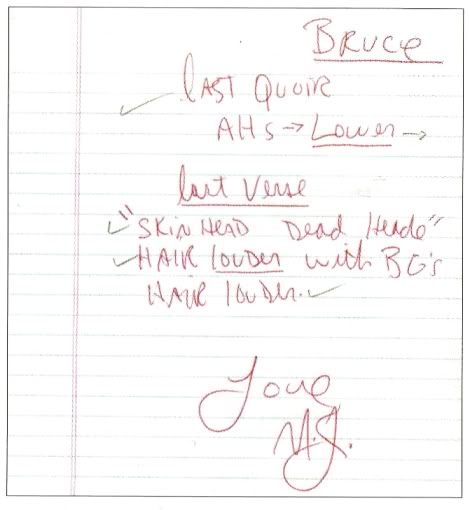 Bruce
last Quoir
AHs → Lower →
last Verse
"Skin Head Dead Heade"
HAIR louder with BG's
HAIR louder.
Love
M.J.